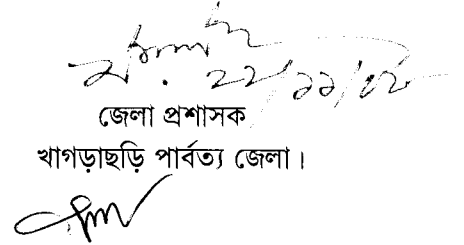 ২২/১১/০৮
জেলা প্রশাসক
খাগড়াছড়ি পার্বত্য জেলা।